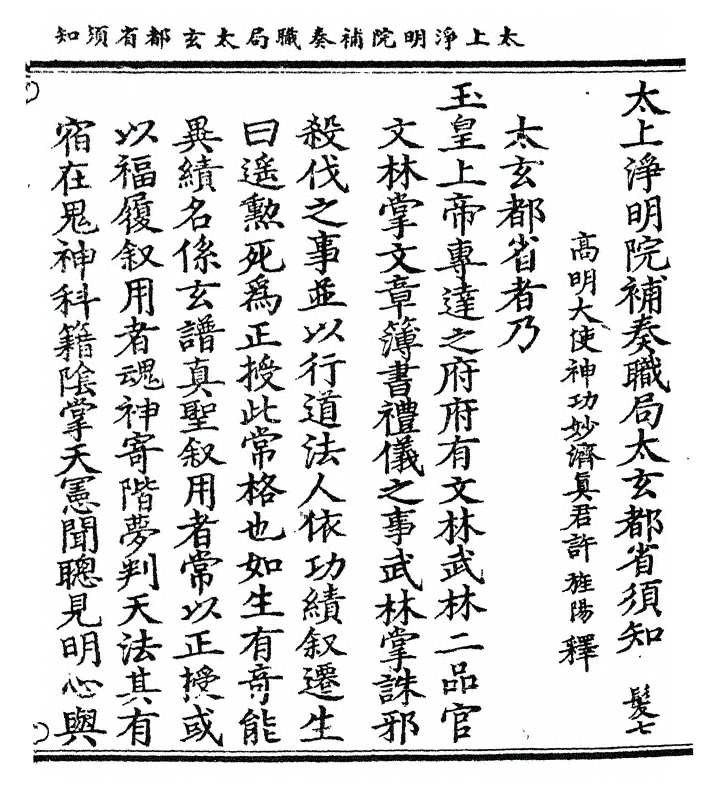 知須省都玄太局職奏補院明淨上太
太上淨明院補奏職局太玄都省須知 髮七
高明大使神功妙濟真君許旌陽釋
太玄都省者乃
玉皇上帝專達之府府有文林武林二品官
文林掌文章簿書禮儀之事武林掌誅邪
殺伐之事並以行道法人依功績叙遷生
曰遥勲死爲正授此常格也如生有奇能
異績名係玄譜真聖叙用者常以正授或
以福履叙用者魂神寄階夢判天法其有
宿在鬼神科籍陰掌天憲聞聰見明心與